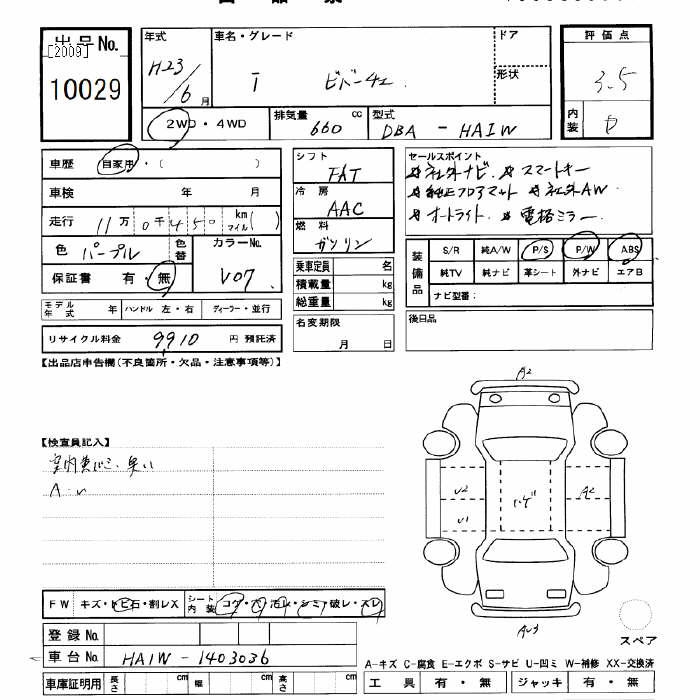 出品No.
[2009]
10029
年式
H23/6月
車名・グレード
I ビバーチェ
ドア
形状
評価点
3.5
内装
D
2WD・4WD
排気量
660 cc
型式
DBA - HA1W
車歴
自家用・( )
車検 年 月
走行 11万0千450 km マイル( )
色 パープル
色替
カラーNo.
V07
保証書 有・無
モデル年式 年 ハンドル 左・右 ディーラー・並行
リサイクル料金 9910 円 預託済
シフト
FAT
冷房
AAC
燃料
ガソリン
乗車定員 名
積載量 kg
総重量 kg
名変期限
月 日
セールスポイント
社外ナビ スマートキー
純正フロアマット 社外AW
オートライト 電格ミラー
装備品
S/R 純A/W P/S P/W ABS
純TV 純ナビ 革シート 外ナビ エアB
ナビ型番:
後日品
【出品店申告欄(不良箇所・欠品・注意事項等)】
【検査員記入】
室内
A・U
A2
U2
U1
ハゲ
A2
AU3
スペア
FW キズ・トビ石・割レX
シート内装 コゲ・穴・汚レ・シミ・破レ・スレ
登録No.
車台No. HA1W - 1403036
車庫証明用 長さ cm 幅 cm 高さ cm
A-キズ C-腐食 E-エクボ S-サビ U-凹ミ W-補修 XX-交換済
工具 有・無 ジャッキ 有・無